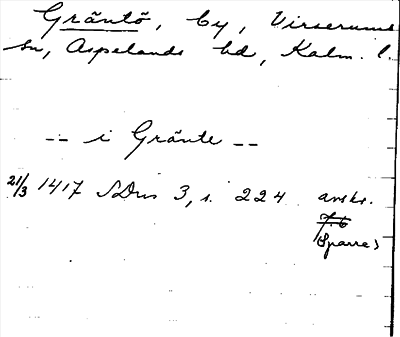 Gräntö, by, Virserums
sn, Aspelands hd, Kalm. l.
-- i Gränte --
21/3 1417 SDns 3, s. 224 avskr.
(Sparre)